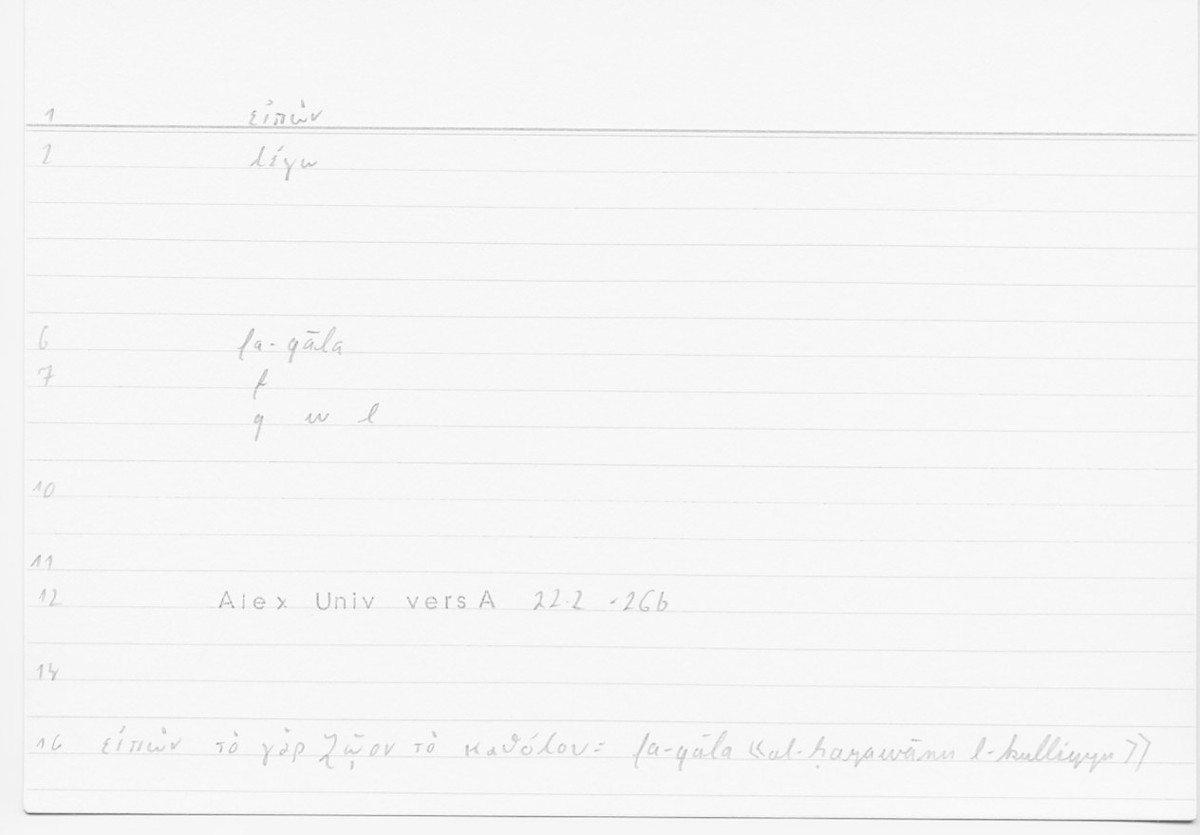 1 εἰπὼν
2 λέγω
6 fa-qāla
7 f
q w l
10
11
12 Alex Univ vers A 22.2 = 26b
14
16 εἰπὼν τὸ γὰρ ζῷον τὸ καθόλου = fa-qāla «al-ḥayawānu l-kulliyyu»